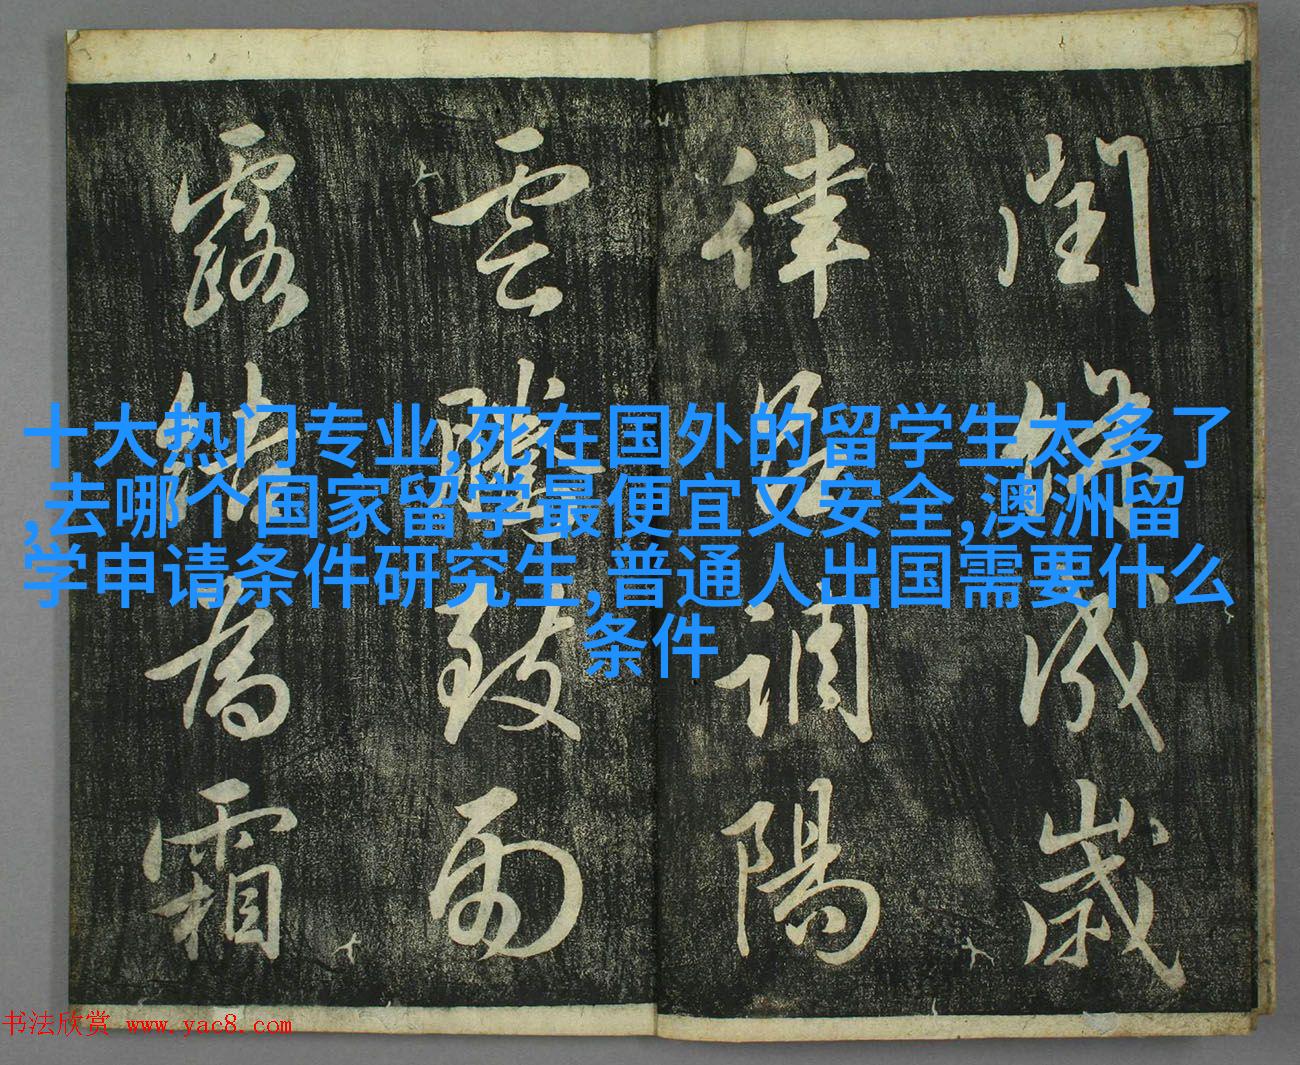 閏餘成歲
律呂調陽
雲騰致雨
露結為霜
十大热门专业,死在国外的留学生太多了
,去哪个国家留学最便宜又安全,澳洲留
学申请条件研究生,普通人出国需要什么
条件
书法欣赏 www.yac8.com